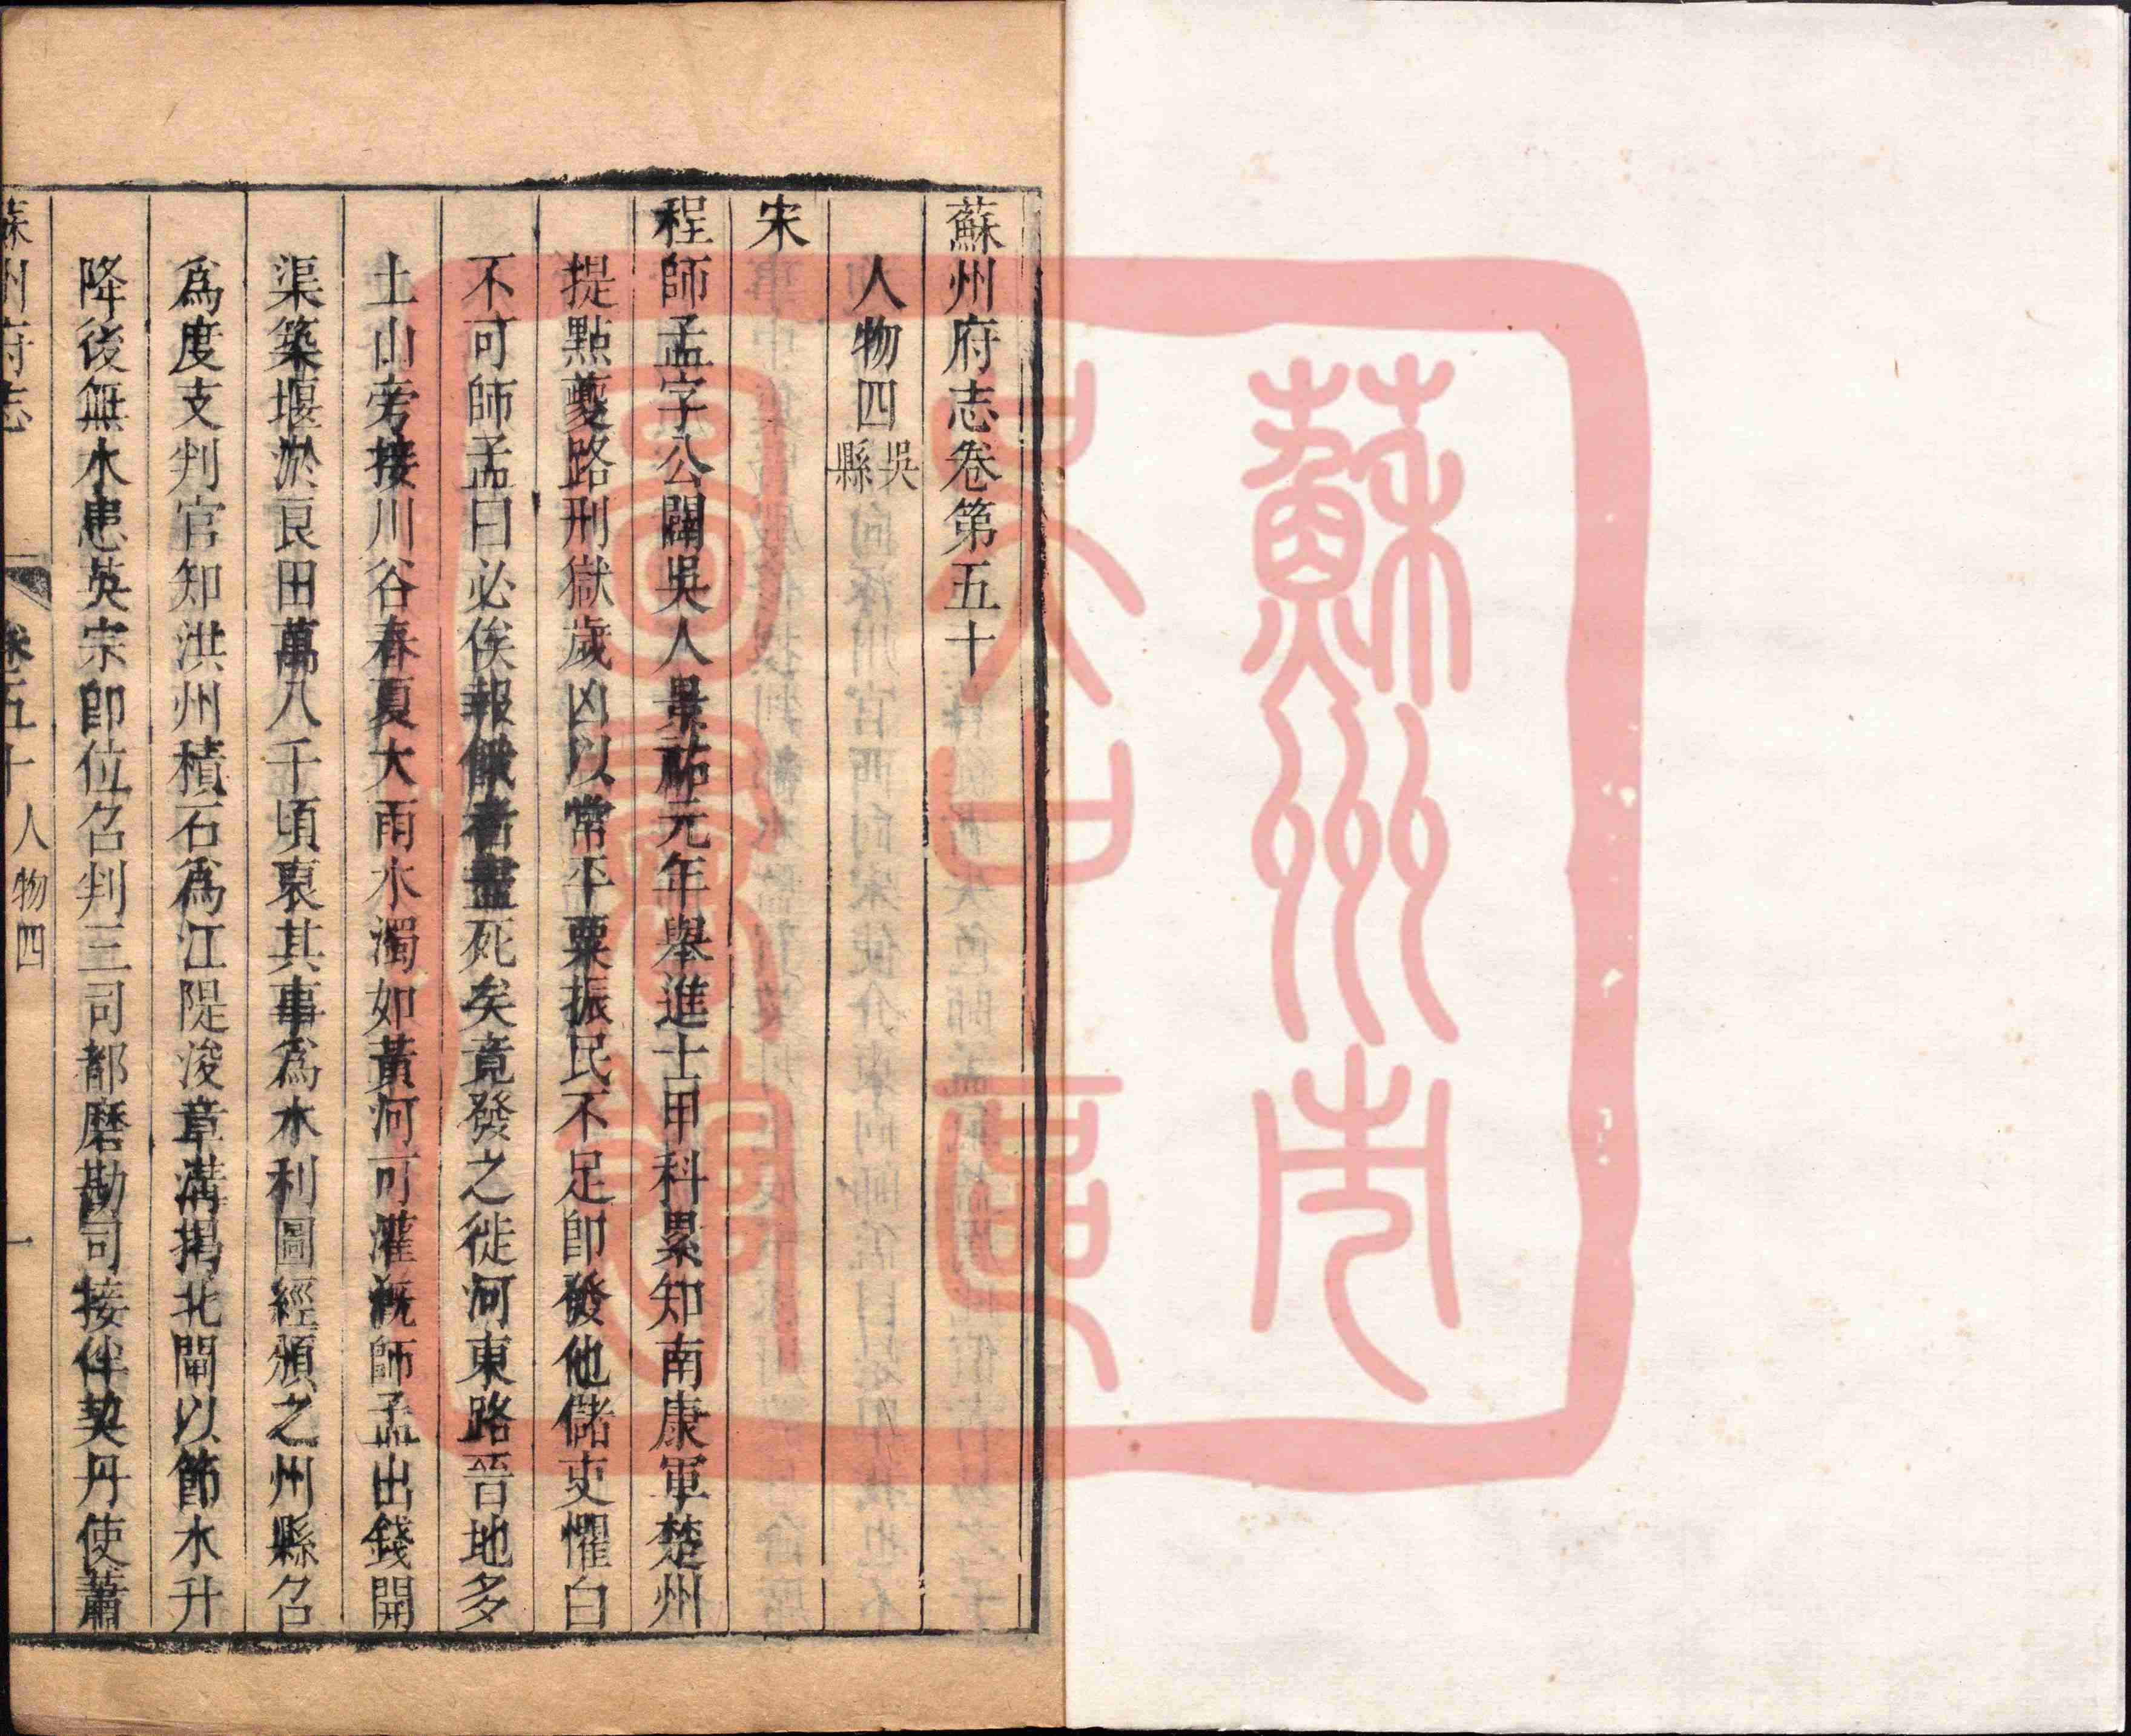 蘇州府志卷第五十
人物四 吳縣
宋
程師孟字公闢吳人景祐元年舉進士甲科累知南康軍楚州
提點夔路刑獄歲凶以常平粟振民不足卽發他儲吏懼白
不可師孟曰必俟報餓者盡死矣竟發之徙河東路晉地多
土山旁接川谷春夏大雨水濁如黃河可灌溉師孟出錢開
渠築堰淤良田萬八千頃裒其事爲水利圖經頒之州縣召
爲度支判官知洪州積石爲江隄浚章溝揭北閘以節水升
降後無水患英宗卽位召判三司都磨勘司接伴契丹使蕭
蘇州府志 卷五十 人物四 一
蘇州市